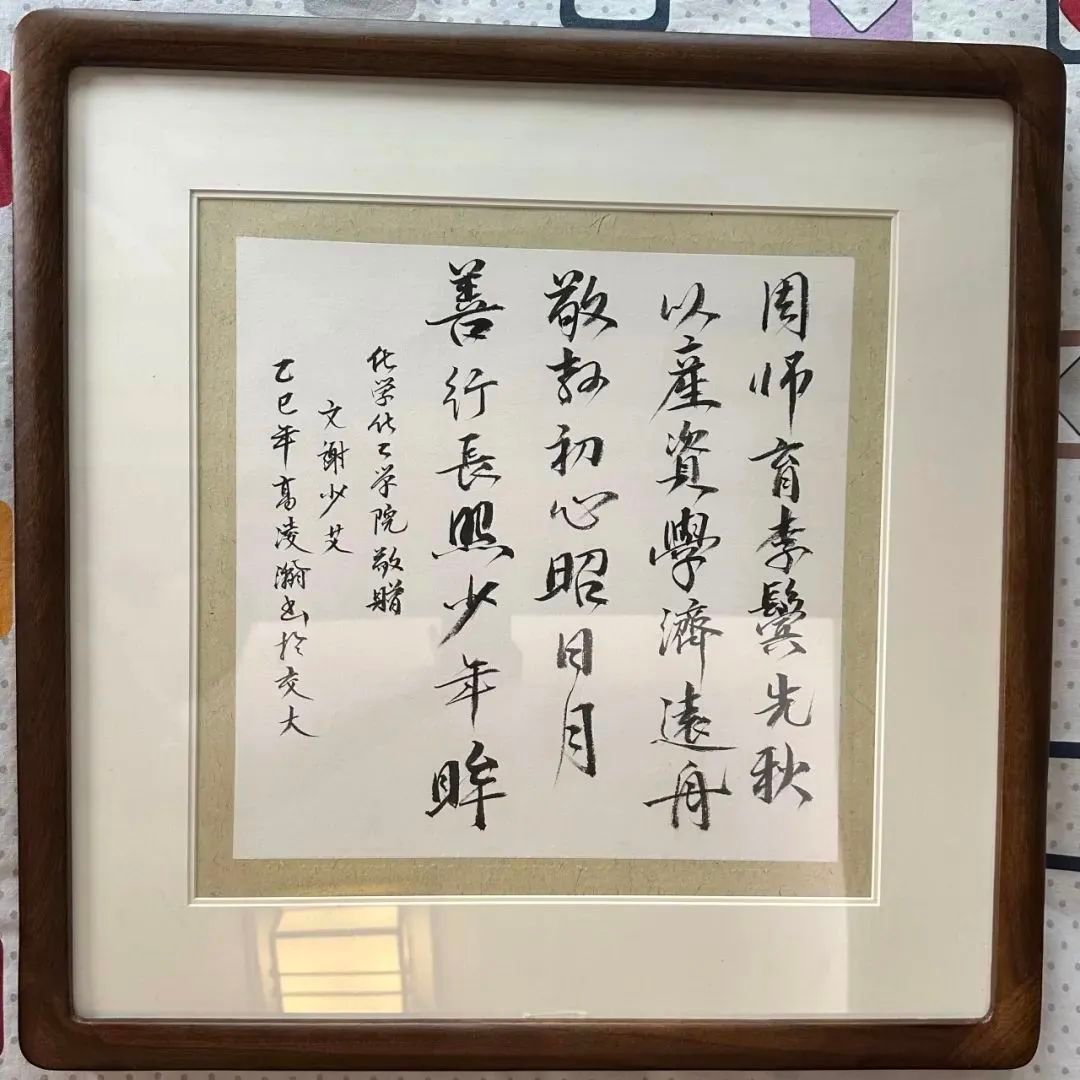 周师育李鬓先秋
以產資學濟遠舟
敬教初心昭日月
善行長照少年眸
化学化工学院敬贈
文谢少艾
乙巳年高凌瀚书於交大